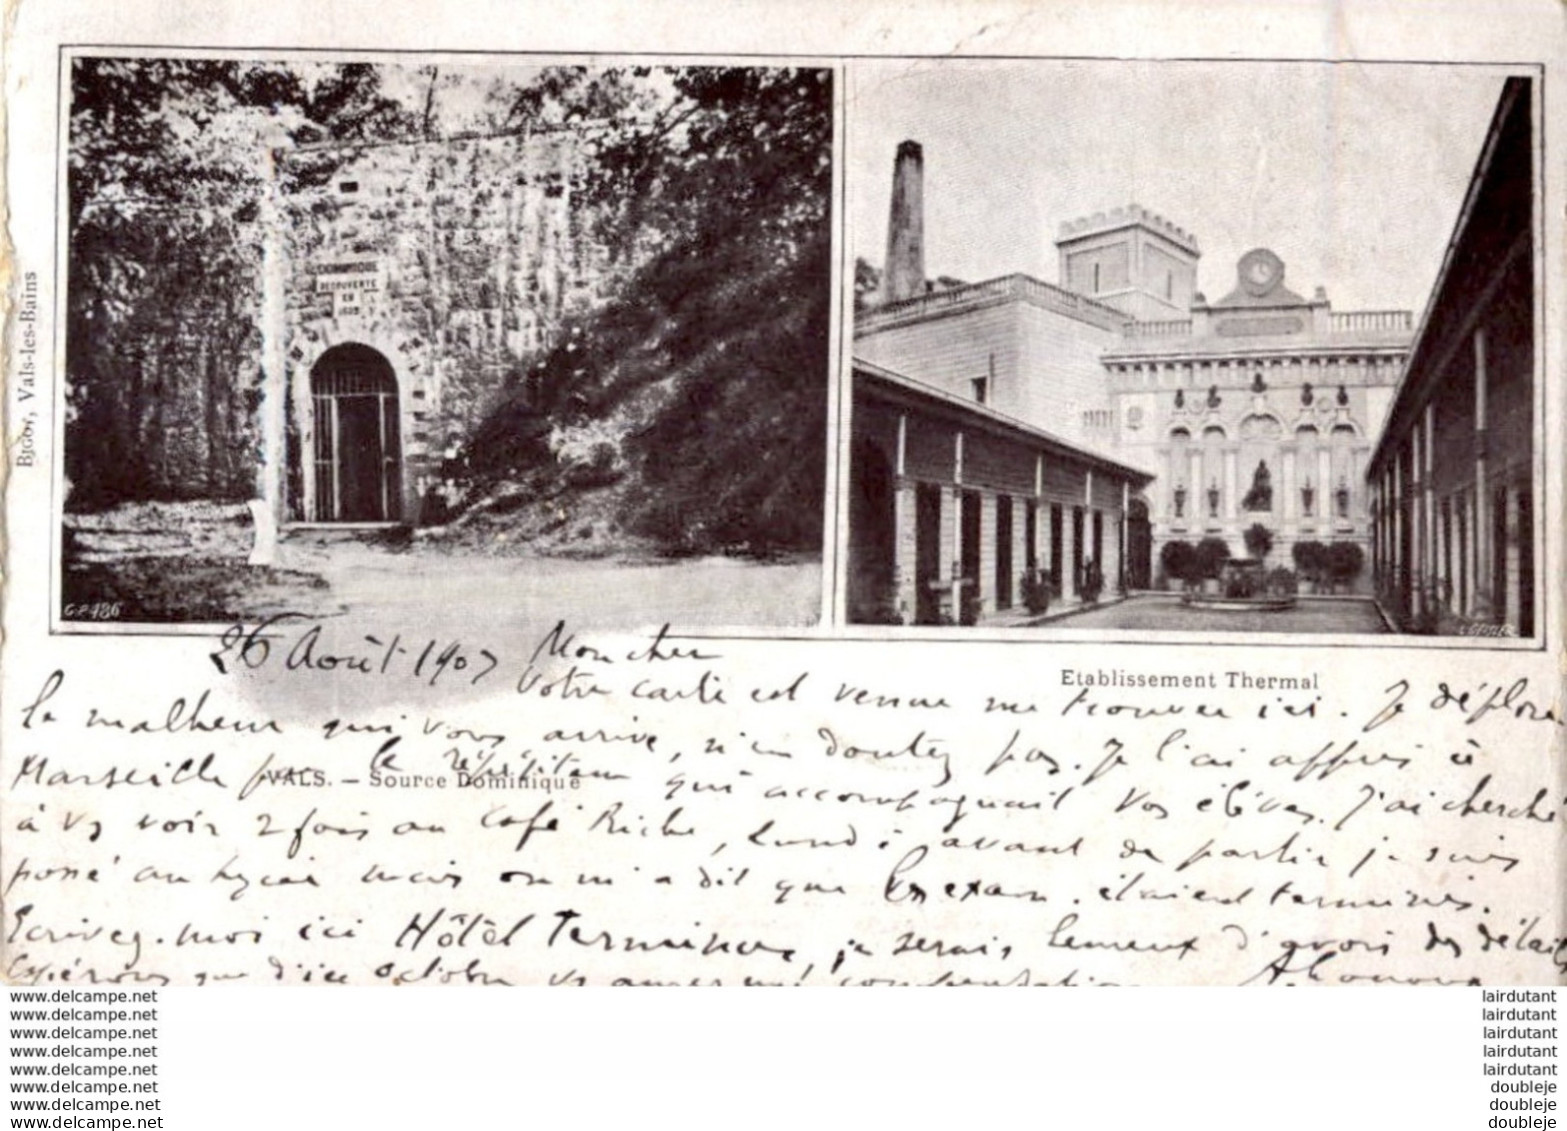 DOMINIQUE
DECOUVERTE
EN
G.P. 486
Bigot, Vals-les-Bains
Etablissement Thermal
26 Août 1907 Mon cher
Votre carte est venue me trouver ici. Je déplore
le malheur qui vous arrive, n'en doutez pas. Je l'ai appris à
Marseille par le répétiteur qui accompagnait vos élèves. J'ai cherché
VALS. — Source Dominique
à vs voir 2 fois au Café Riche, lundi avant de partir je suis
passé au lycée mais on m'a dit que les exam. étaient terminés.
Ecrivez-moi ici Hôtel Terminus, je serais heureux d'avoir des détails
Espérons que d'ici octobre vs aurez une
www.delcampe.net
www.delcampe.net
www.delcampe.net
www.delcampe.net
www.delcampe.net
www.delcampe.net
www.delcampe.net
www.delcampe.net
lairdutant
lairdutant
lairdutant
lairdutant
lairdutant
doubleje
doubleje
doubleje